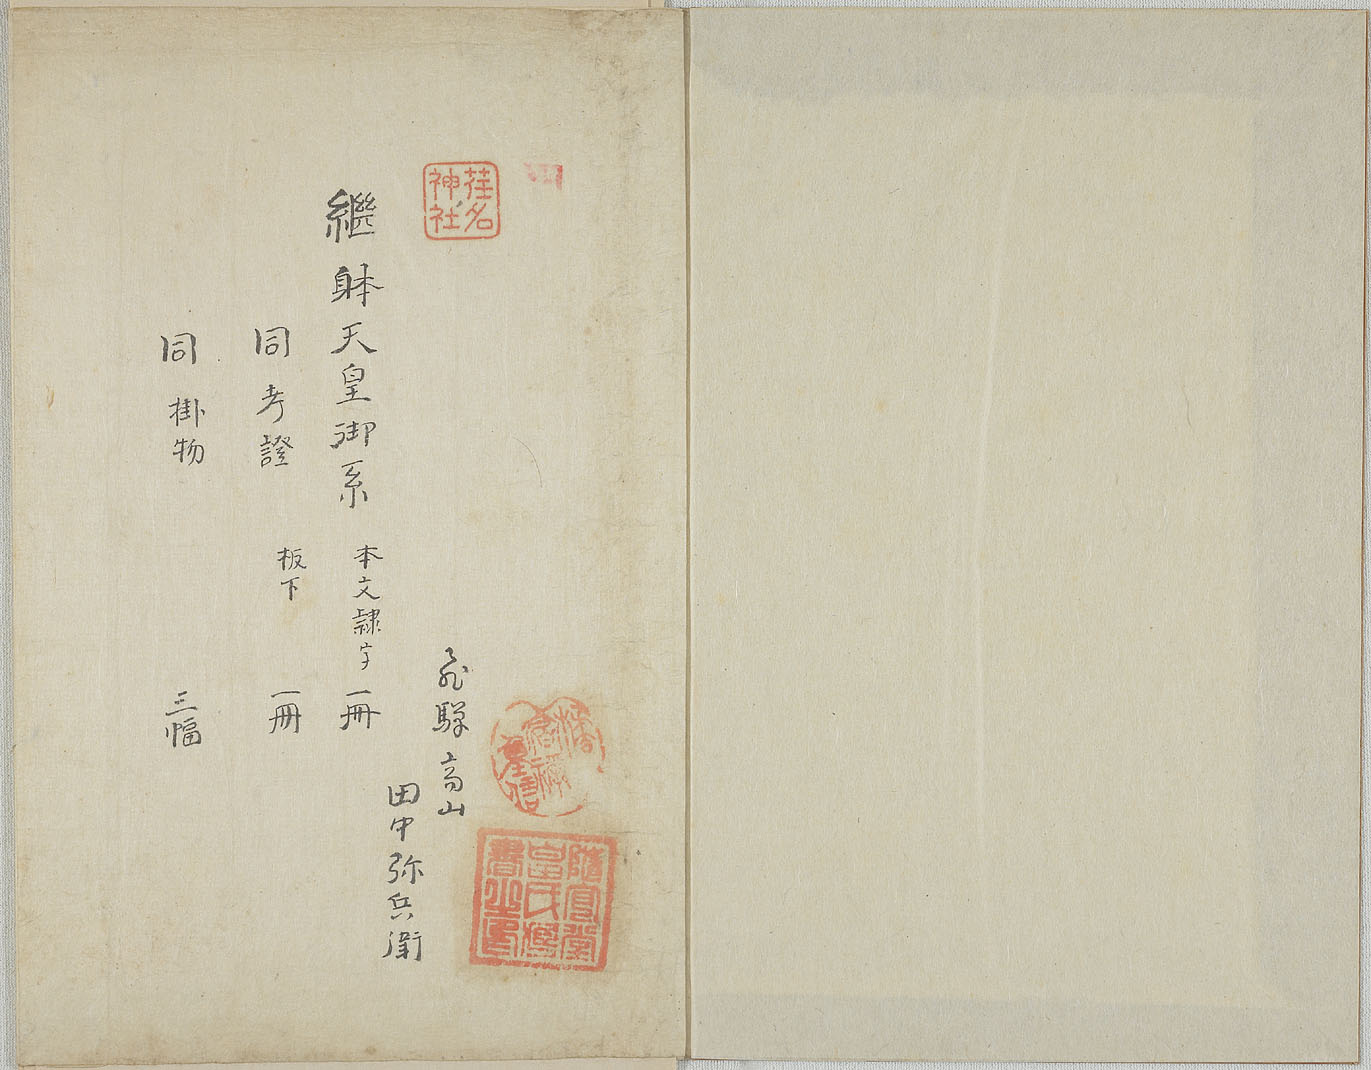 荏名神社
飛騨高山
田中弥兵衛
繼躰天皇御系 本文隷字 一冊
同考證 板下 一冊
同掛物 三幅